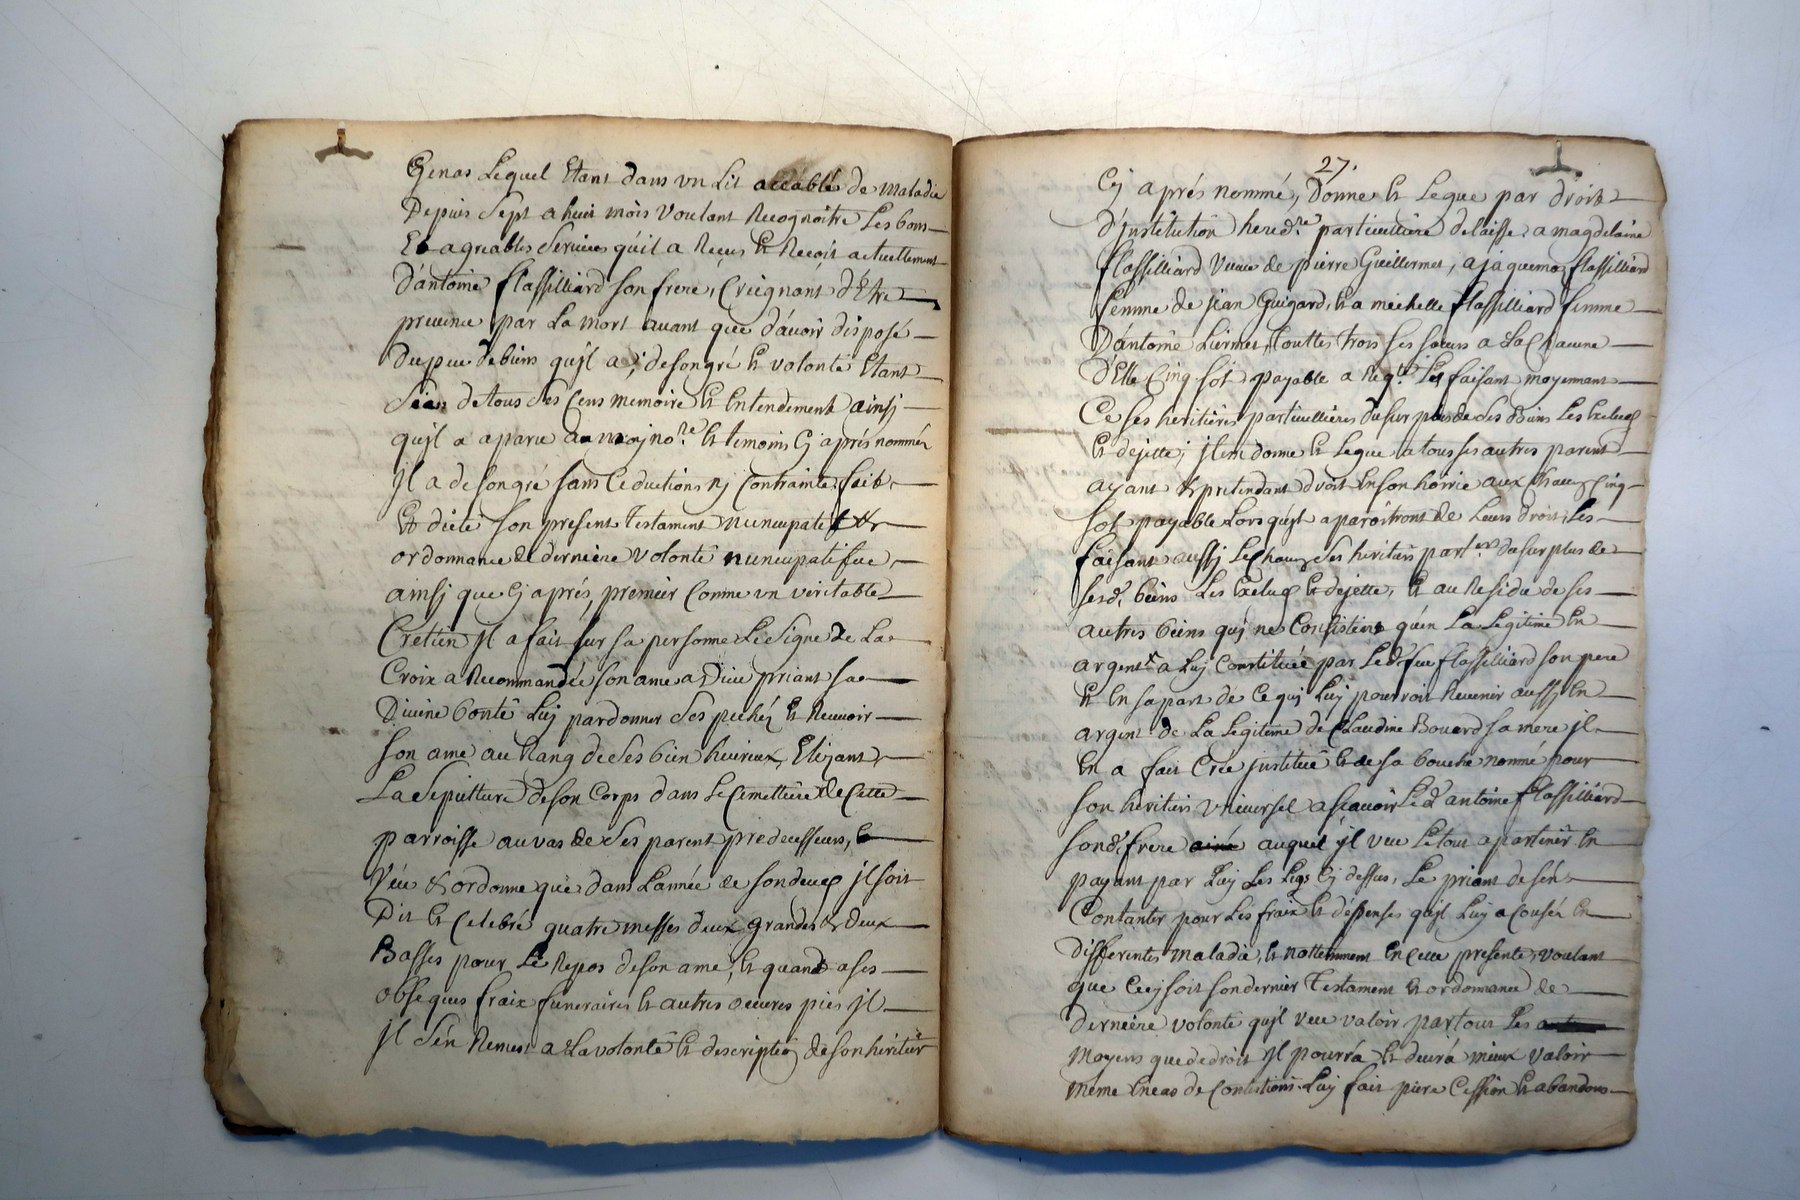 Genas Lequel Etant dans vn Lit accablé de maladie
Depuis Sept a huit mois voulant Recognoitre Les bons
Et agreables Services qu'il a Reçus Et Reçoit actuellement
D'antoine flassilliard son frere, Creignant d'Etre
prevenu par La mort avant que d'avoir disposé
Du peu de biens qu'jl a, de son gré Et volonté Etant
Sein de tous ses Cens memoire Et Entendement ainsj
qu'jl a aparu a moj no.re Et temoins Cj aprés nommés
jl a de son gré sans Ceductions nj Contrainte fait
Et dicté son present Testament nuncupatif Et
ordonnance de derniere volonté nuncupatifue
ainsj que Cj aprés, premier Comme vn veritable
Cretien jl a fait sur sa personne Le Signe de La
Croix a Recommandée son ame a Dieu priant sa
Divine bonté Luj pardonner Ses pechéz Et Recevoir
son ame au Rang de Ses bien heureux, Elizant
La Sepulture de son Corps dans Le Cemettiere de Cette
parroisse au vas de Ses parent predecesseurs, Et
Veu & ordonne que dans L'année de son deces jl soit
Dit Et Celebré quatre messes deux grandes & deux
Basses pour Le Repos de son ame, Et quand a ses
obseques fraix funeraires Et autres oeuvres pies jl
jl s'en Remest a La volonté Et description de son heritier
27.
Cj aprés nommé, Donne Et Legue par droit
D'jnstitution hered.re particulliere delaisse a magdelaine
flassilliard veuve de pierre Guillermet, a jaquema flassilliard
femme de jean Guigard, Et a michelle flassilliard femme
D'antoine Liermet, Touttes Trois ses soeurs a La Chacune
D'Elle Cinq sol payable a Req.te Les faisant moyennant
Ce ses heritieres particullieres du sur plus de Ses Biens Les Exclus
Et dejette, jl en donne Et Legue a tous ses autres parent
ayant & pretendant droit En son hoirie aux Chacun Cinq
sol payable Lors qu'jl aparoitront de Leurs droit, Les
faisant aussj Le Chacun Ses heritiers part.ers du sur plus de
sesd. biens Les Exclus Et dejette, Et au Residu de ses
autres biens quj ne Consistent qu'en La Legitime En
argent a Luj Constituée par Led. feu flassilliard son pere
Et En sa part de Ce quj Luj pourroit Revenir aussj En
argent de La Legitime de Claudine Bouard sa mere jl
En a fait Créé jnstitué Et de sa bouche nommé pour
son heritier vniversel a scavoir Le d. antoine flassilliard
sond. frere auquel jl veu Le tout apartenir En
payant par Luj Les Legs Cj dessus, Le priant de s'en
Contanter pour Les fraix Et dépenses qu'jl Luj a Cousén En
differentes maladie, Et nottemment En Cette presente, voulant
que Cecj soit son dernier Testament Et ordonnance de
derniere volonté qu'jl veu valoir par tous Les
moyens que de droit jl pourrá Et devrá mieux valoir
meme En cas de Contestions Luj fait pure Cession Et abandons